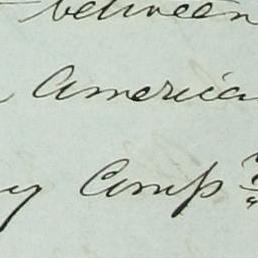 between
America
Comp